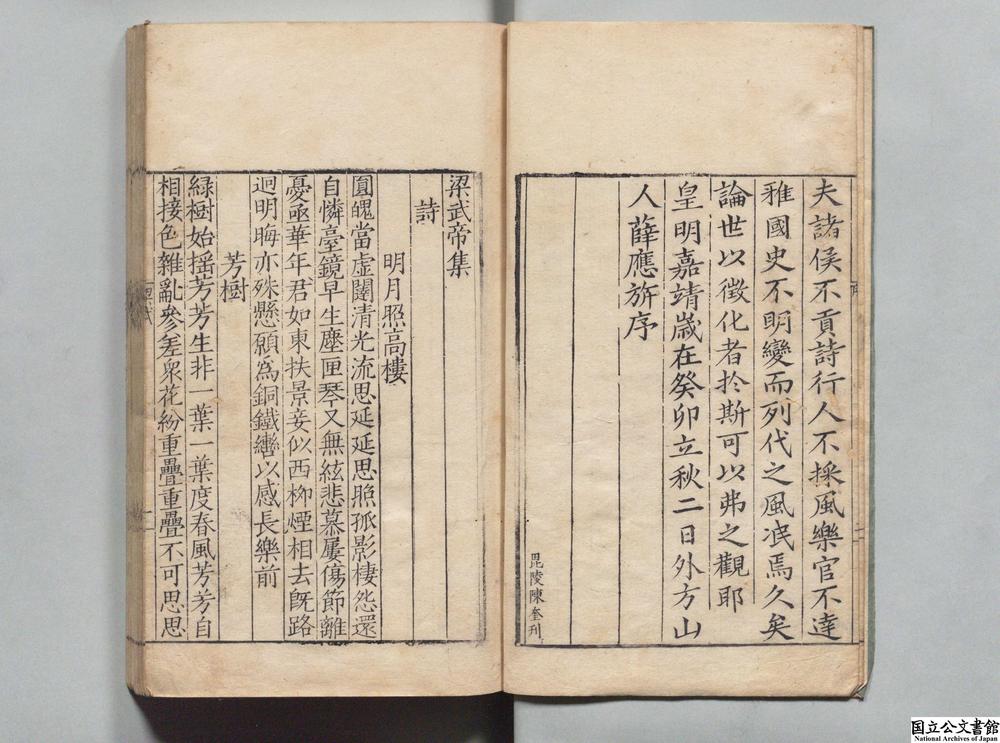 夫諸侯不貢詩行人不採風樂官不達
雅國史不明變而列代之風泯焉久矣
論世以徵化者於斯可以弗之觀耶
皇明嘉靖歲在癸卯立秋二日外方山
人薛應旂序
毘陵陳奎刋
梁武帝集
詩
明月照高樓
圓魄當虛闥清光流思延延思照孤影悽怨還
自憐臺鏡早生塵匣琴又無絃悲慕屢傷節離
憂亟華年君如東扶景妾似西栁煙相去旣路
迥明晦亦殊懸願為銅鐵轡以感長樂前
芳樹
緑樹始搖芳芳生非一葉一葉度春風芳芳自
相接色雜亂參差衆花紛重疊重疊不可思思
国立公文書館
National Archives of Japan